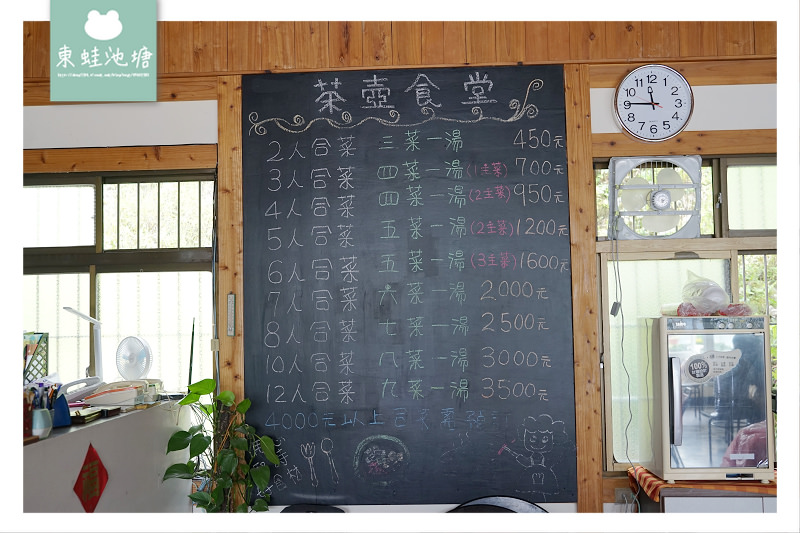 東蛙池塘
茶壺食堂
2人合菜 三菜一湯 450元
3人合菜 四菜一湯(1主菜) 700元
4人合菜 四菜一湯(2主菜) 950元
5人合菜 五菜一湯(2主菜) 1200元
6人合菜 五菜一湯(3主菜) 1600元
7人合菜 六菜一湯 2000元
8人合菜 七菜一湯 2500元
10人合菜 八菜一湯 3000元
12人合菜 九菜一湯 3500元
4000元以上合菜需預訂
12 1 2 3 4 5 6 7 8 9 10 11
100%